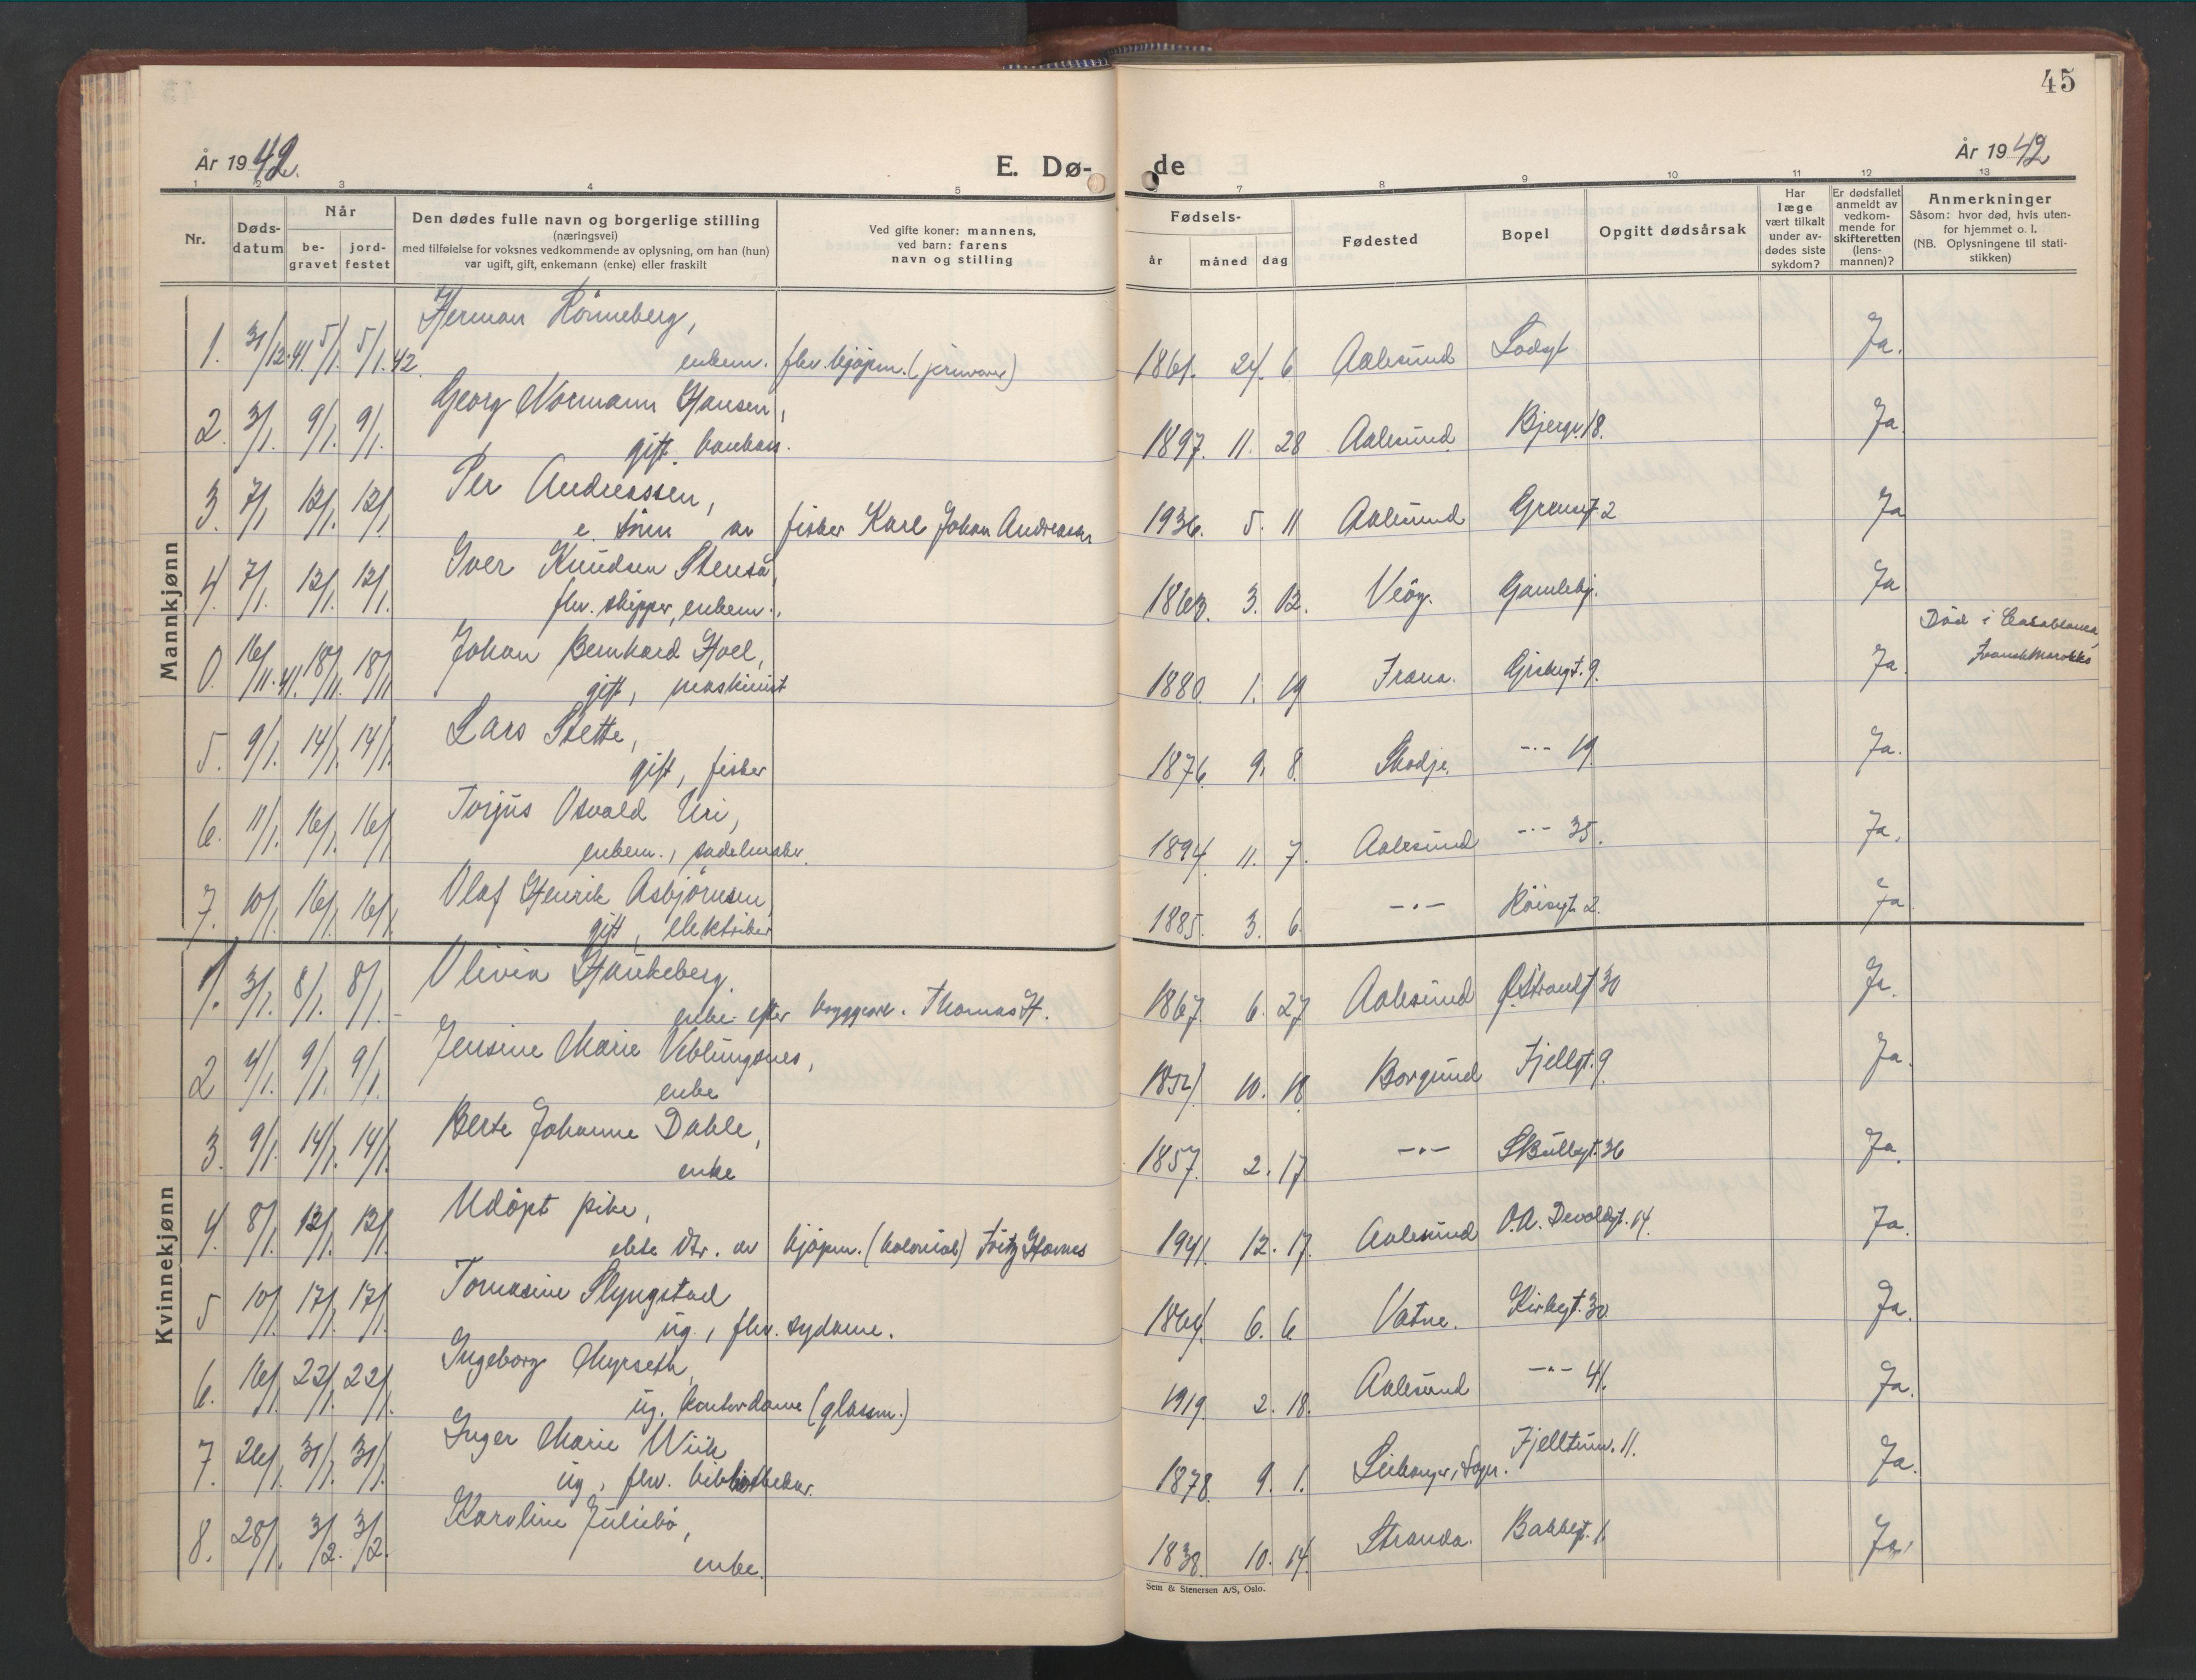 45
År 1942.
E. Dø-
de
År 1942
1 2 3 4 5 7 8 9 10 11 12 13
Nr.
Døds-
datum
Når
be-
gravet
jord-
festet
Den dødes fulle navn og borgerlige stilling
(næringsvei)
med tilføielse for voksnes vedkommende av oplysning, om han (hun)
var ugift, gift, enkemann (enke) eller fraskilt
Ved gifte koner: mannens,
ved barn: farens
navn og stilling
Fødsels-
år måned dag
Fødested
Bopel
Opgitt dødsårsak
Har
læge
vært tilkalt
under av-
dødes siste
sykdom?
Er dødsfallet
anmeldt av
vedkom-
mende for
skifteretten
(lens-
mannen)?
Anmerkninger
Såsom: hvor død, hvis uten-
for hjemmet o. l.
(NB. Oplysningene til stati-
stikken)
Mannkjønn
Herman Rönneberg,
1. 31/12.41. 5/1. 5/1.42. enkem. fhv. kjøpm. 1861. 24. 6 Aalesund Lodgt Ja.
Georg Normann Hansen,
2. 3/1. 9/1. 9/1. gift. 1897. 11. 28 Aalesund Bjergv. 18. Ja.
Per Andreassen,
3. 7/1 12/1. 12/1. e. sönn av fisker Karl Johan Andreassen 1936. 5. 11 Aalesund 2 Ja
Iver Knudsen Stenså,
4. 7/1. 12/1. 12/1. fhv. skipper, enkem. 1863. 3. 12. Veöy. Gamlehj. Ja
Johan Bernhard Hoel,
0. 16/11.41. 18/11. 18/11 gift, maskinist 1880. 1. 19 Frana. 9. Ja. Död i Casablanca, Fransk Marokko
Lars Stette,
5. 9/1. 14/1. 14/1. gift, fisker 1876 9. 8. Skodje. -"- 19. Ja.
Torjus Osvald Uri,
6. 11/1. 16/1. 16/1 enkem., sadelmaker. 1894. 11. 7. Aalesund -"- 35. Ja.
Olaf Henrik Asbjörnsen,
7. 10/1. 16/1. 16/1. gift, elektriker 1885. 3. 6. -"- Röisgt. 2. Ja
Kvinnekjønn
Olivia Haukeberg.
1. 3/1. 8/1. 8/1. enke efter bryggearb. Thomas H. 1867. 6. 27 Aalesund Ø. Strandgt 30 Ja.
Jensine Marie Veblungsnes,
2 4/1. 9/1. 9/1. enke 10. 18 Borgund Fjellgt. 9. Ja.
Berte Johanne Dahle,
3. 9/1. 14/1. 14/1. enke 1857. 2. 17. -"- Skullegt. 36 Ja.
Udöpt pike,
4. 8/1. 12/1. 12/1. ekte dtr. av kjøpm. (kolonial) Fritz 1941. 12. 17. Aalesund O.A. Devoldgt. 14. Ja.
Tomasine Slyngstad
5 10/1. 17/1. 17/1. ug., fhv. sydame. 1864. 6. 6 Vatne. Kirkegt. 30 Ja.
Ingeborg Myrseth,
6. 16/1. 22/1. 22/1. ug. kontordame (glassm.) 1919. 2. 18. Aalesund -"- 41. Ja.
Inger Marie Wiik
7. 26/1. 31/1. 31/1. ug, fhv. bibliothekar. 1878. 9. 1. Leikanger, Sogn. Fjelltunv. 11. Ja.
Karoline Juliebö,
8. 28/1. 3/2. 3/2. enke. 1838. 10. 14. Stranda. Bakkegt. 1. Ja.
Sem & Stenersen A/S, Oslo.